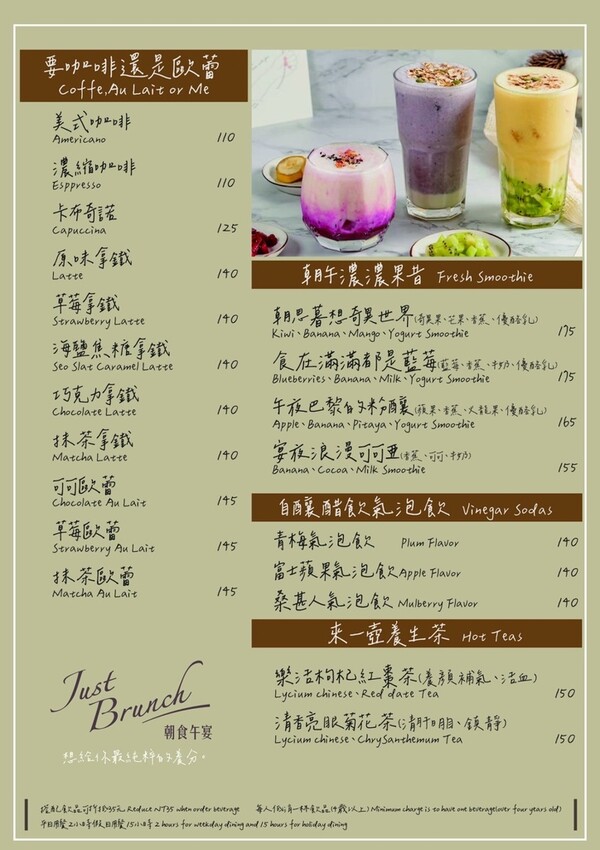 要咖啡還是歐蕾
Coffe,Au Lait or Me
美式咖啡
Americano 110
濃縮咖啡
Esppresso 110
卡布奇諾
Capuccina 125
原味拿鐵
Latte 140
草莓拿鐵
Strawberry Latte 140
海鹽焦糖拿鐵
Seo Slat Caramel Latte 140
巧克力拿鐵
Chocolate Latte 140
抹茶拿鐵
Matcha Latte 140
可可歐蕾
Chocolate Au Lait 145
草莓歐蕾
Strawberry Au Lait 145
抹茶歐蕾
Matcha Au Lait 145
Just
Brunch
朝食午宴
想給你最純粹的養分。
朝午濃濃果昔 Fresh Smoothie
朝思暮想奇異世界(奇異果、芒果、香蕉、優酪乳)
Kiwi、Banana、Mango、Yogurt Smoothie 175
食在滿滿都是藍莓(藍莓、香蕉、牛奶、優酪乳)
Blueberries、Banana、Milk、Yogurt Smoothie 175
午夜巴黎的粉釀(蘋果、香蕉、火龍果、優酪乳)
Apple、Banana、Pitaya、Yogurt Smoothie 165
宴夜浪漫可可亞(香蕉、可可、牛奶)
Banana、Cocoa、Milk Smoothie 155
自釀醋飲氣泡飲 Vinegar Sodas
青梅氣泡飲 Plum Flavor 140
富士蘋果氣泡飲 Apple Flavor 140
桑葚人氣泡飲 Mulberry Flavor 140
來一壺養生茶 Hot Teas
樂活枸杞紅棗茶(養顏補氣、活血)
Lycium chinese、Red date Tea 150
清香亮眼菊花茶(清肝明目、鎮靜)
Lycium chinese、ChrySanthemum Tea 150
搭配飲品可折抵35元 Reduce NT35 when order beverage 每人低消一杯飲品(4歲以上) Minimum charge is to have one beverage(over four years old)
平日用餐2小時假日用餐1.5小時 2 hours for weekday dining and 15 hours for holiday dining